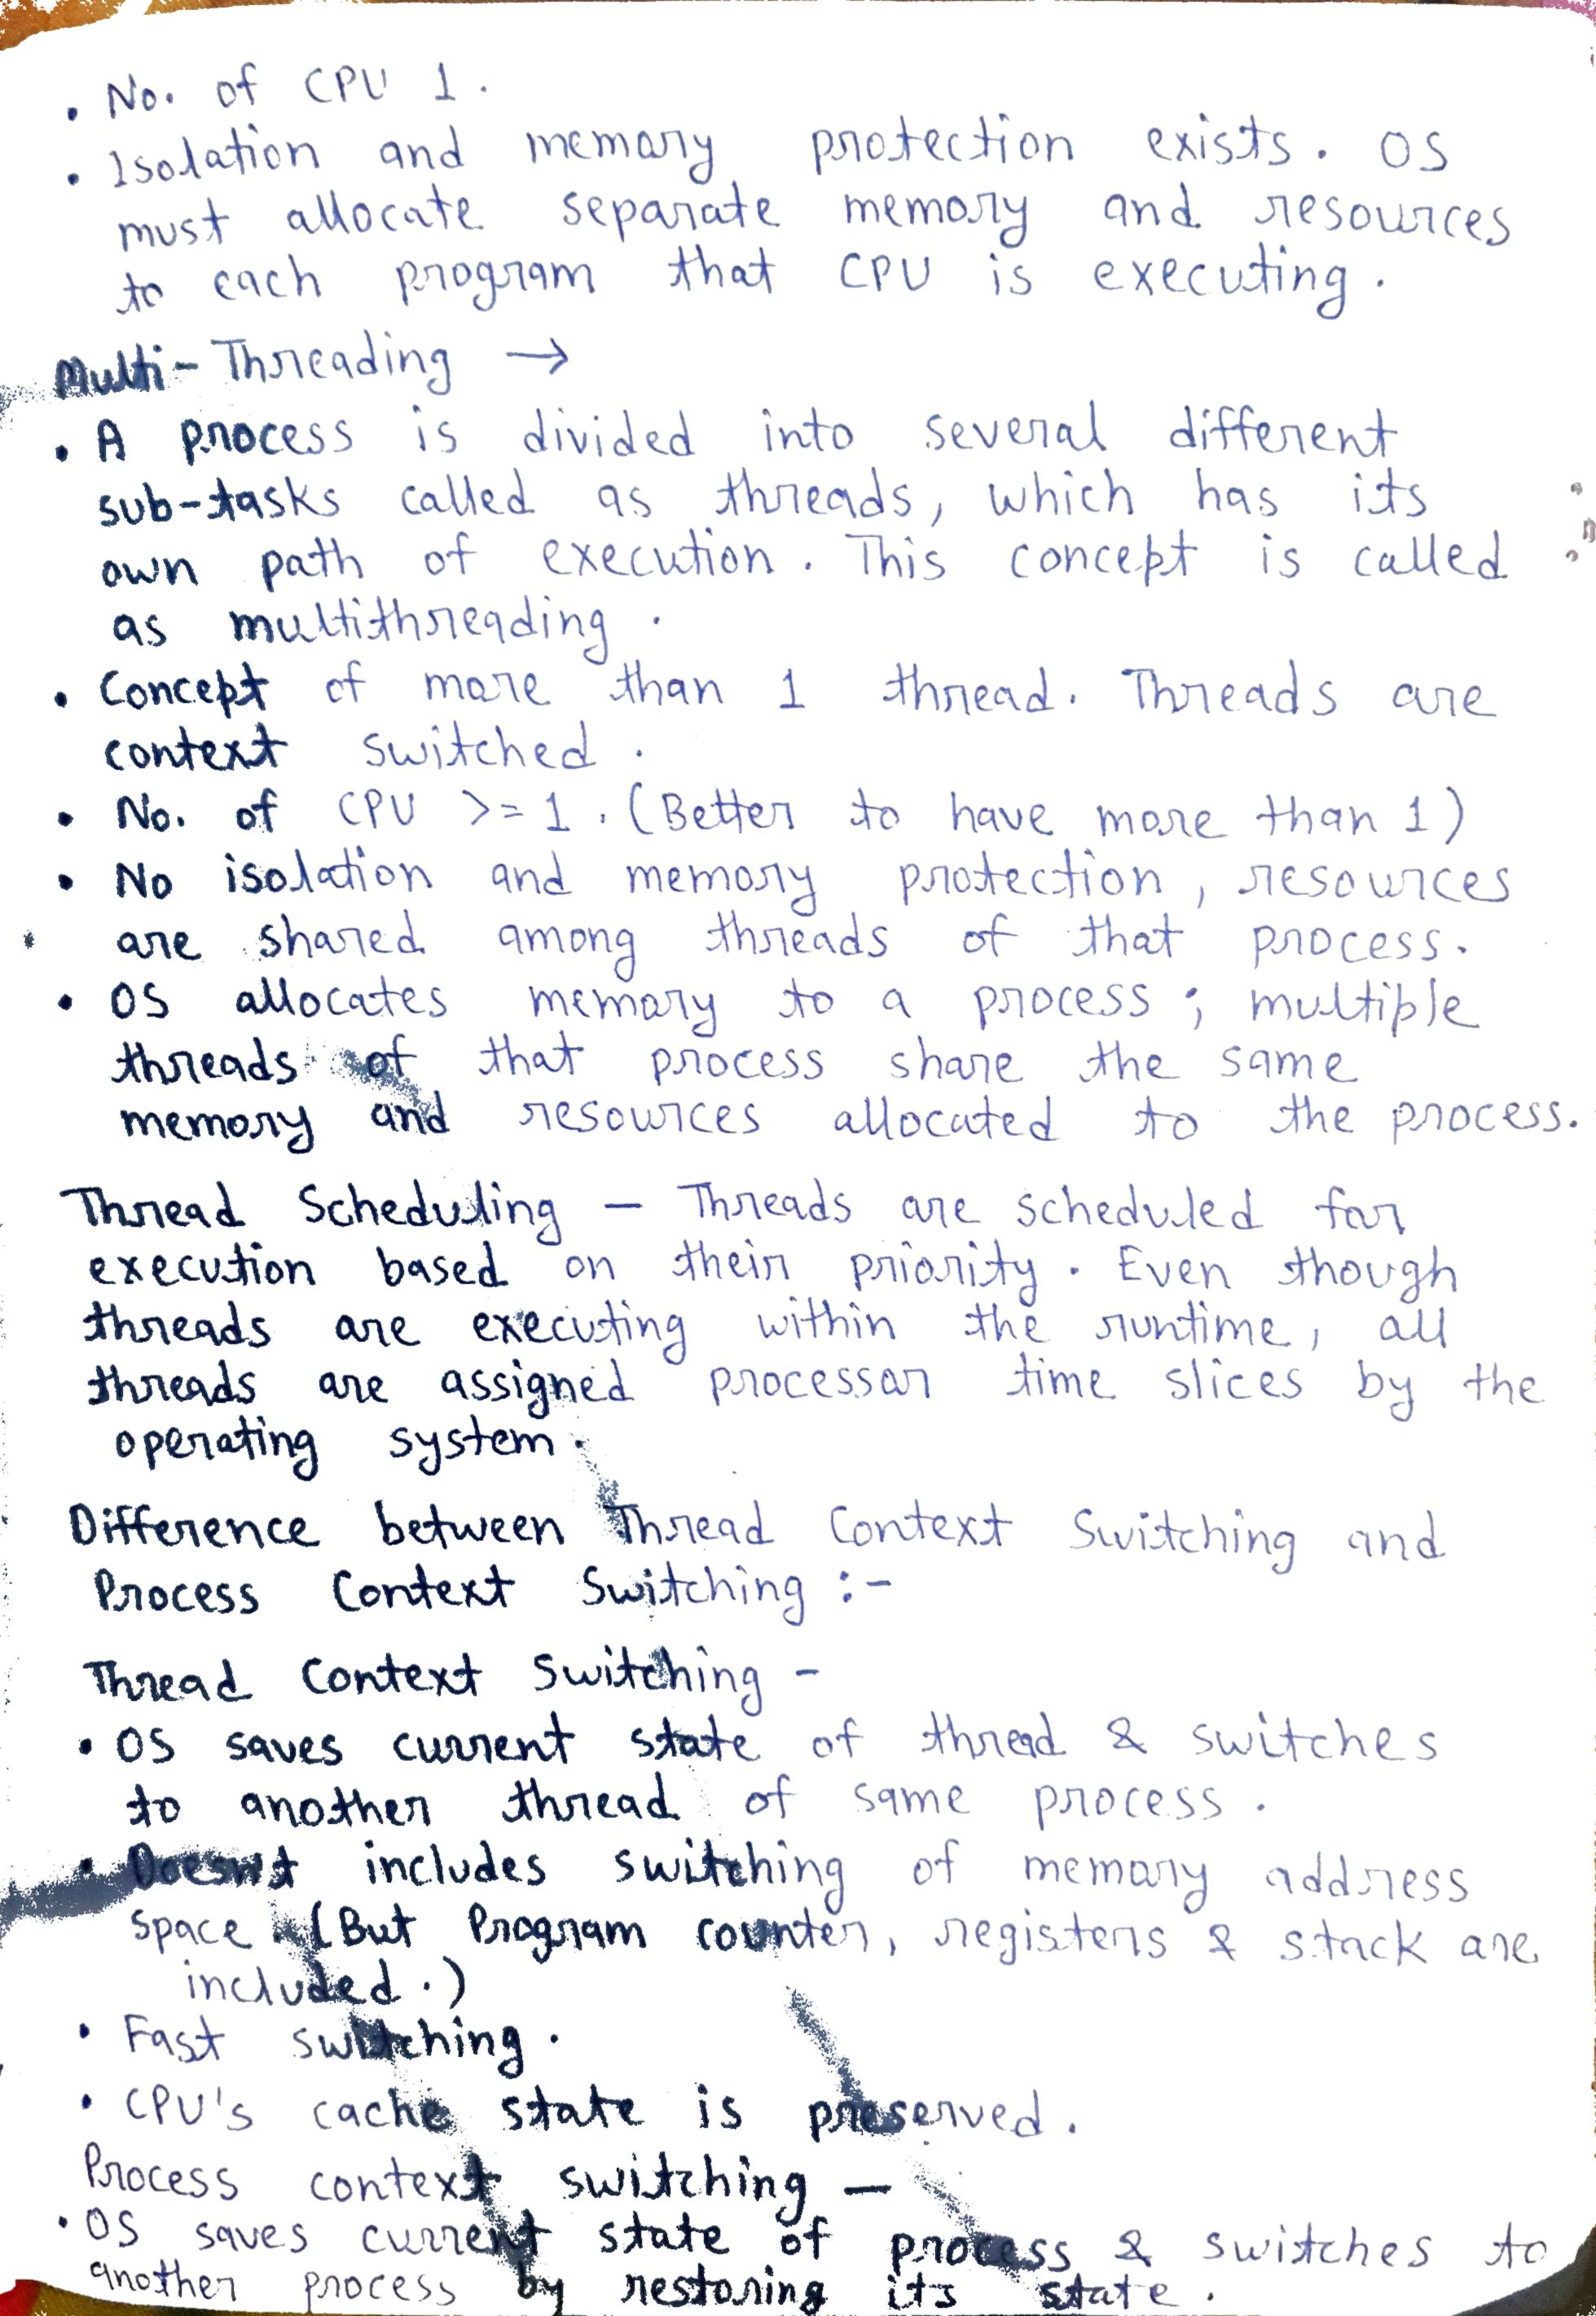 • No. of CPU 1.
• Isolation and memory protection exists. OS
must allocate separate memory and resources
to each program that CPU is executing.
Multi-Threading →
• A process is divided into several different
sub-tasks called as threads, which has its
own path of execution. This concept is called
as multithreading.
• Concept of more than 1 thread. Threads are
context switched.
• No. of CPU >= 1. (Better to have more than 1)
• No isolation and memory protection, resources
are shared among threads of that process.
• OS allocates memory to a process; multiple
threads of that process share the same
memory and resources allocated to the process.
Thread Scheduling — Threads are scheduled for
execution based on their priority. Even though
threads are executing within the runtime, all
threads are assigned processor time slices by the
operating system.
Difference between Thread Context Switching and
Process Context Switching :-
Thread Context Switching -
• OS saves current state of thread & switches
to another thread of same process.
• Doesn't includes switching of memory address
space (But Program counter, registers & stack are
included.)
• Fast switching.
• CPU's cache state is preserved.
Process context switching —
• OS saves current state of process & switches to
another process by restoring its state.